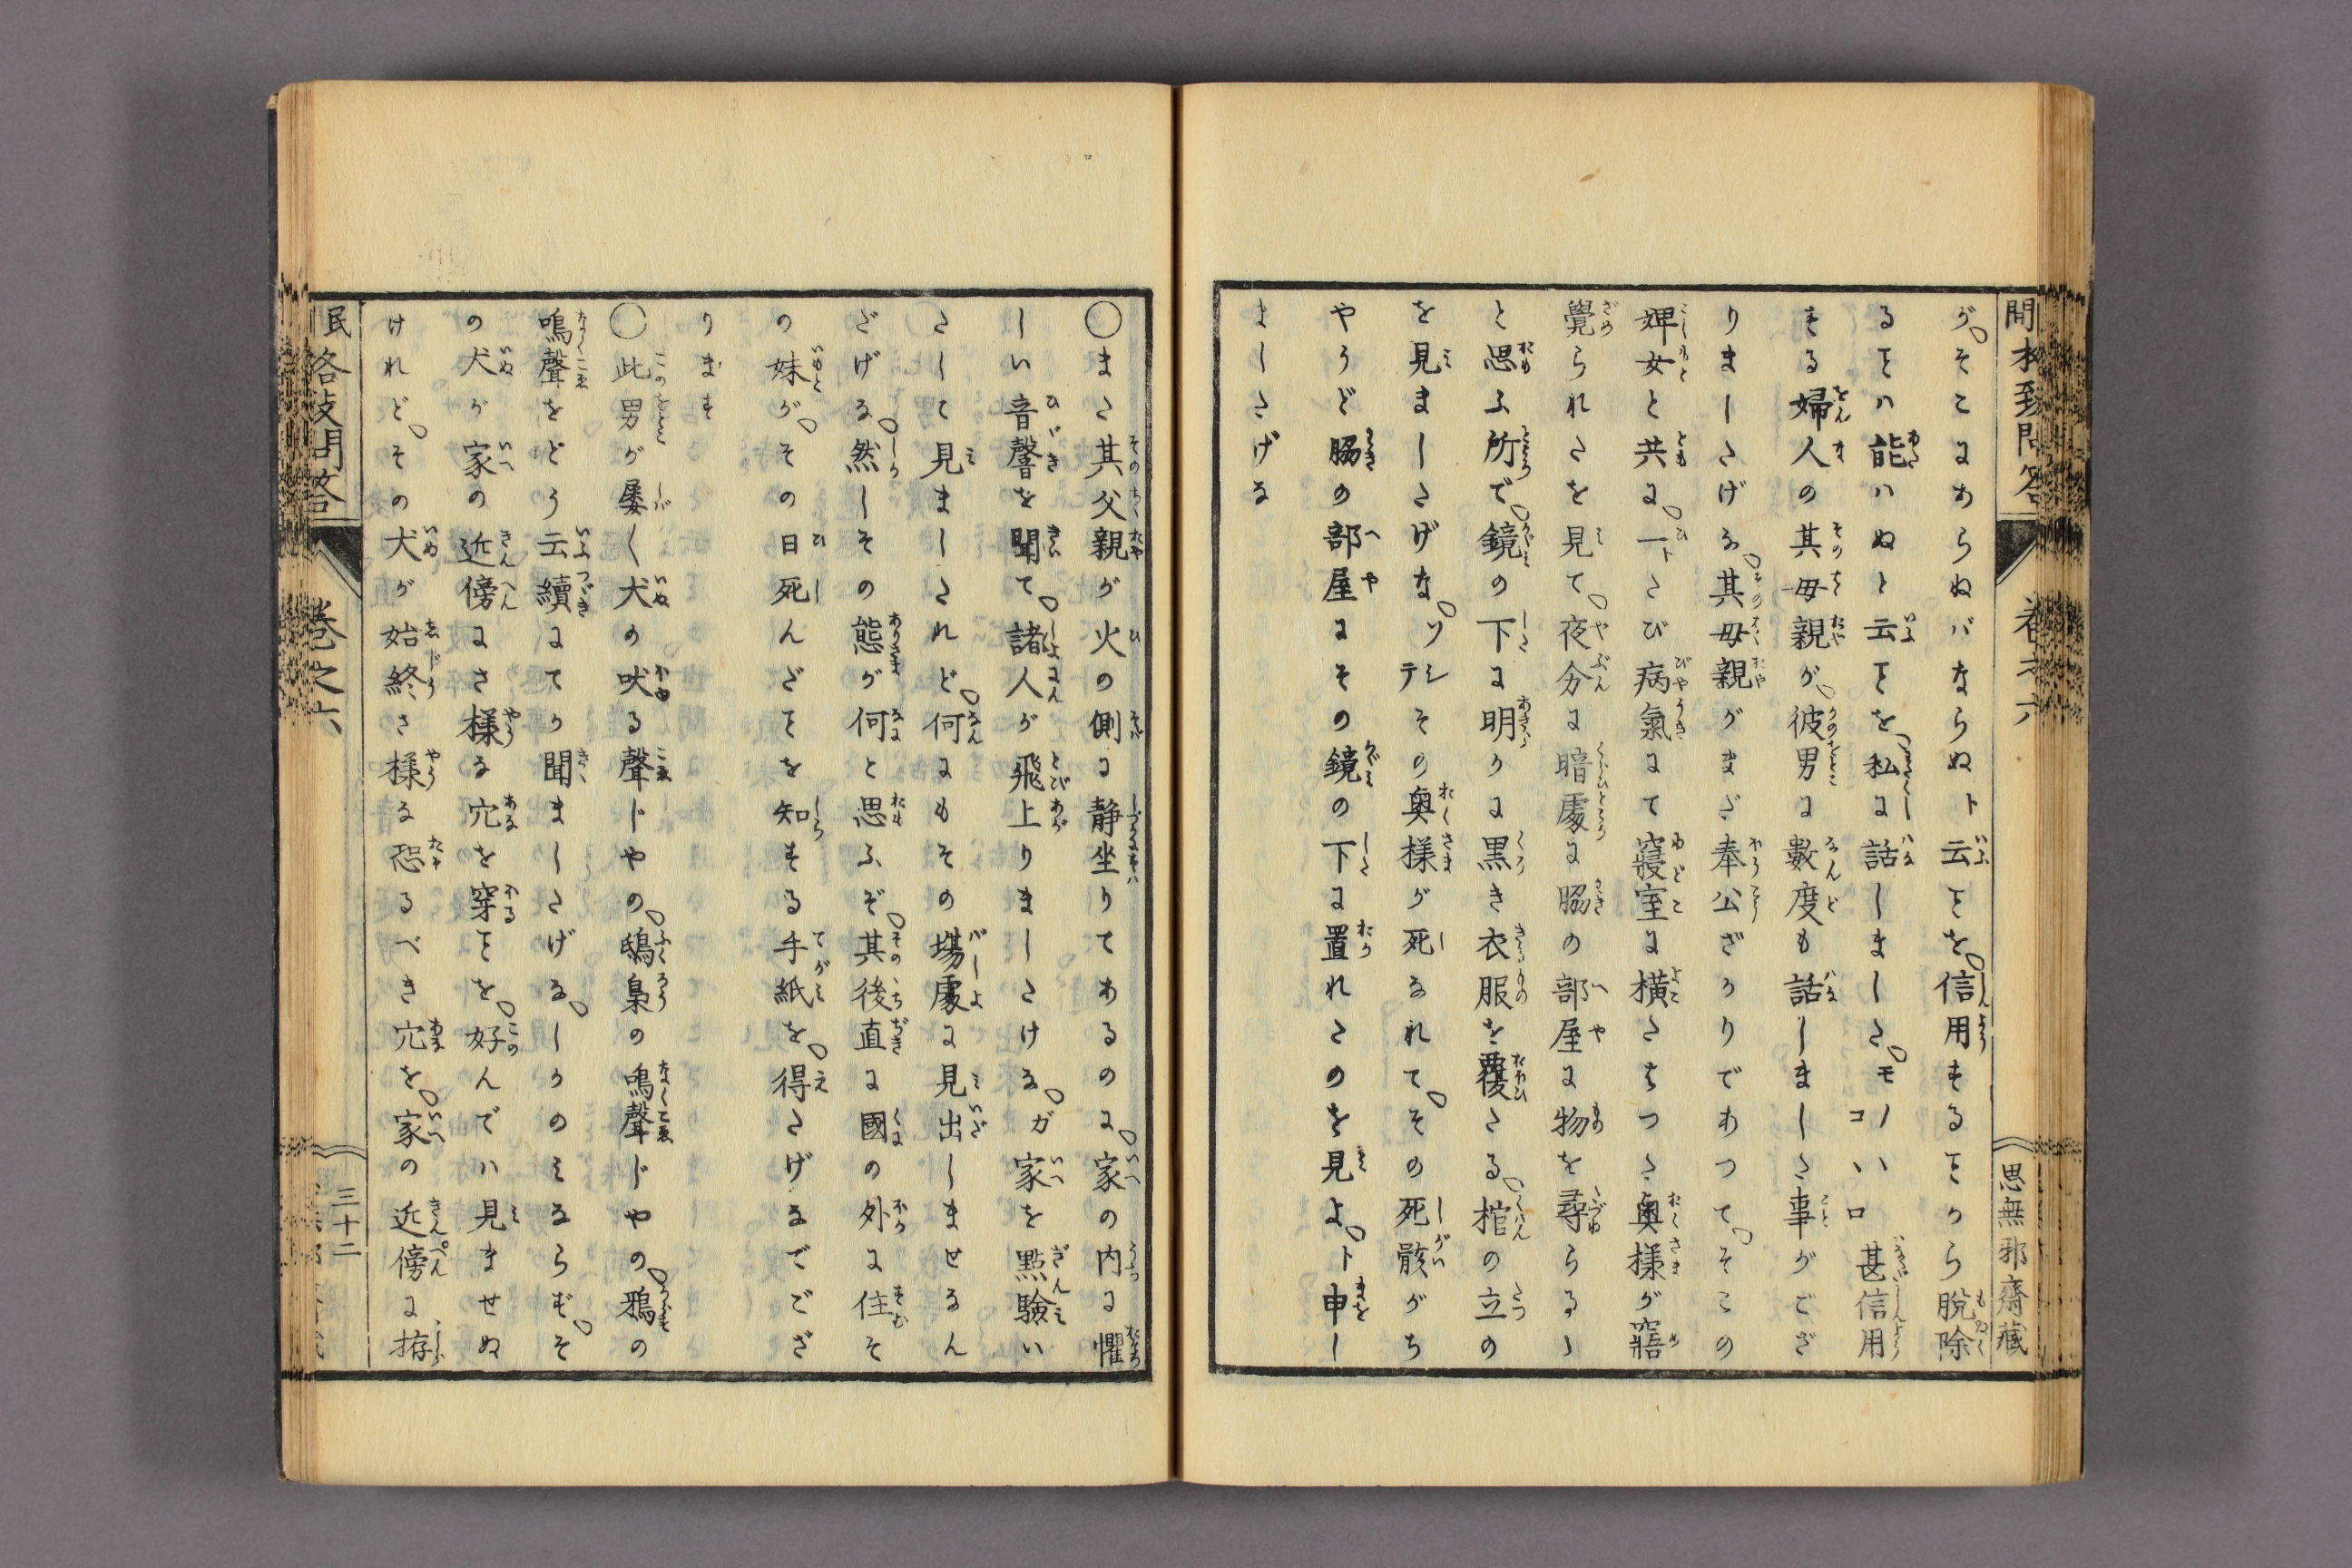 開物改問答 卷之六 思無邪齋藏
が。そこにあらぬバならぬト云ことを。信用することから脫除
ることハ能ハぬと云ことを私に話しました。モノハ甚信用
する婦人の其母親が。彼男に數度も話しました事がござ
りましたげな。其母親がまだ奉公ざかりであつて。そこの
婢女と共に。一トたび病氣にて寢室に橫たちつた奧樣が寤
覺られたを見て。夜分に暗處に脇の部屋に物を尋らるゝ
と思ふ所で。鏡の下に明かに黑き衣服を覆たる。棺の立の
を見ましたげな。ソシテその奧樣が死なれて。その死骸がち
やうど脇の部屋にその鏡の下に置れたのを見よ。ト申し
ましたげな
○また其父親が火の側に靜坐りてあるのに。家の內に懼
しい音聲を聞て。諸人が飛上りましたける。ガ家を點驗い
たして見ましたれど。何にもその場處に見出しませなん
だげな。然しその態が何と思ふぞ。其後直に國の外に住そ
の妹が。その日死んだことを知する手紙を。得たげなでござ
ります
○此男が屡〱犬の吠る聲じやの。鴟梟の鳴聲じやの。鴉の
鳴聲をどう云續にてか聞ましたげな。しかのみならず。そ
の犬が家の近傍にさ樣な穴を穿ることを。好んでハ見ませぬ
けれど。その犬が始終さ樣な恐るべき穴を。家の近傍に拵
卷之六 三十二